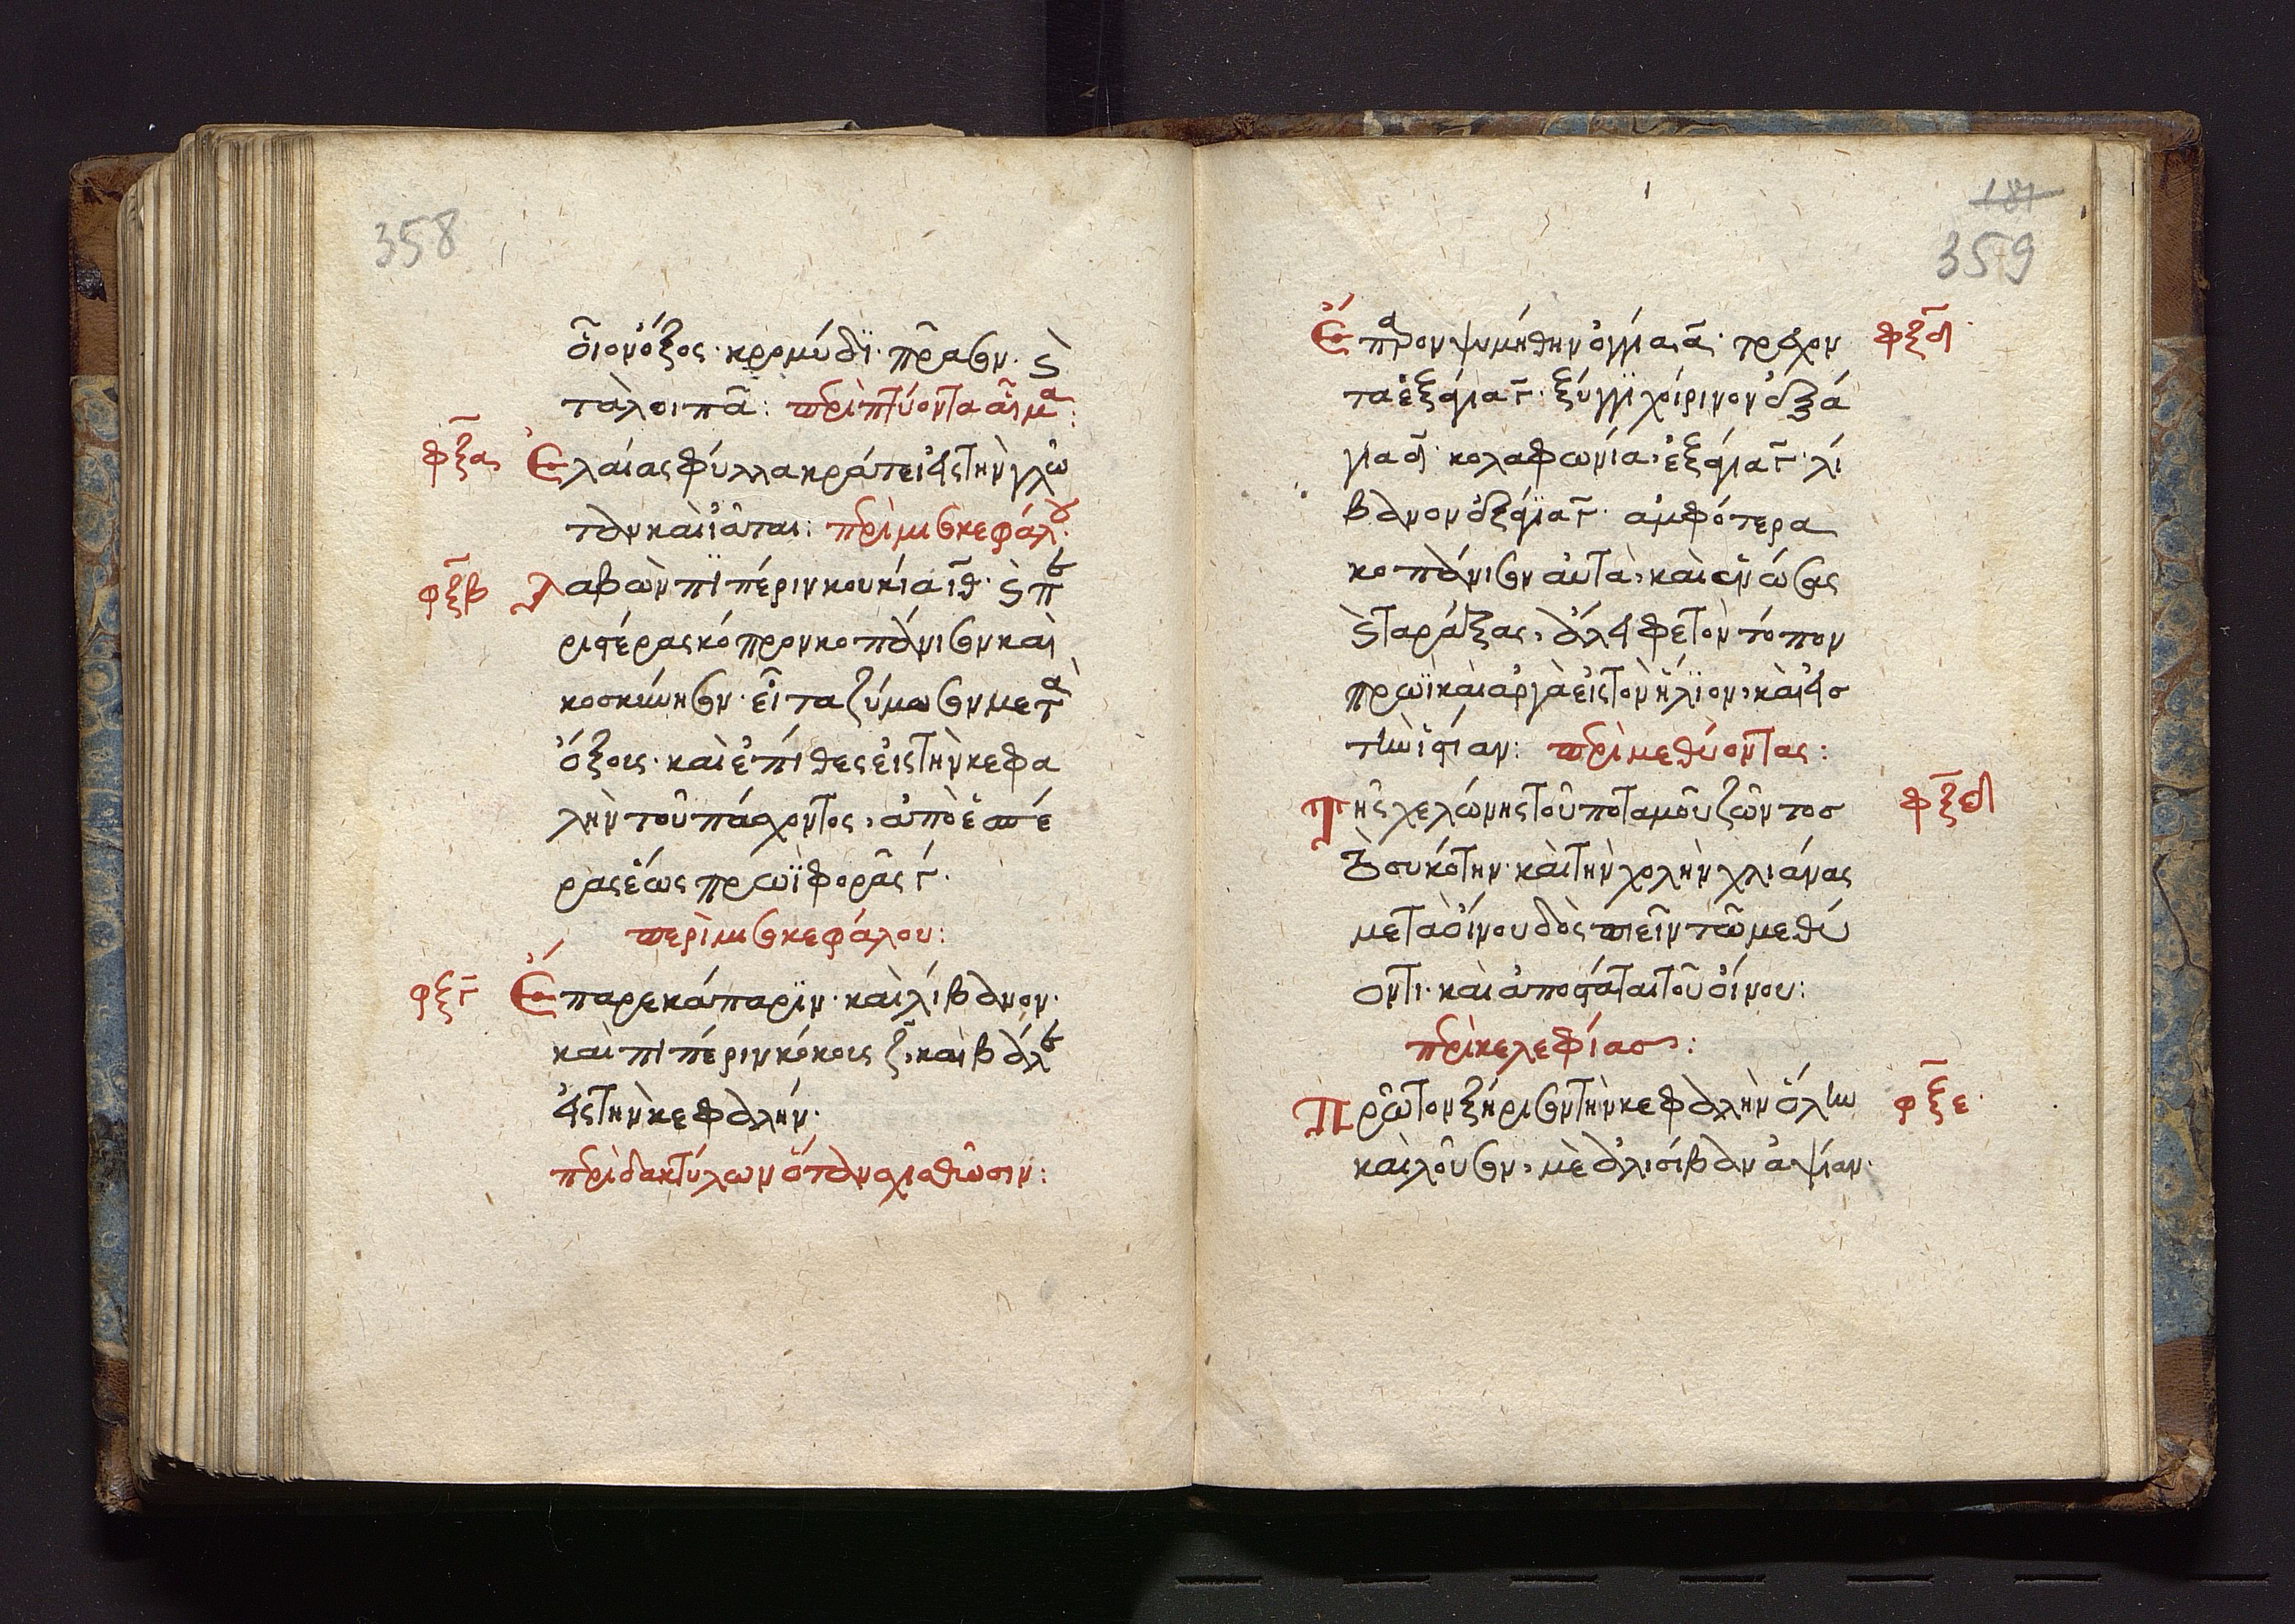 358
οἷον ὄξος· κρομύδϊ· πράσην· ϛ
τὰ λοιπᾶ: περὶ πτύοντα αἷμα:
φξα Ἐλαίας φύλλα κράτει εἰς τὴν γλῶ
ταν καὶ ἰᾶται: περὶ μισηκεφάλου·
φξβ Λαβὼν πιπέριν κουκία ιθ· ϛ πε
ριστέρας κόπρον κοπάνισην καὶ
κοσκίνησην· εἶτα ζύμωσην μετὰ
ὄξους· καὶ ἐπίθες εἰς τὴν κεφα
λὴν τοῦ πάσχοντος, ἀπὸ ἑσπέ
ρας ἕως πρωῒ φορᾶς γ·
περὶ μισηκεφάλου:
φξγ Ἔπαρε κάπαρϊν· καὶ λίβανον·
καὶ πιπέριν κόκους ζ, καὶ βάλε
εἰς τὴν κεφαλήν·
περὶ δακτύλων ὅταν σχισθῶσιν:
181
359
Ἔπαρον ψυμήθην ὀγγία α· τρέχον φξδ
τα ἑξάγια γ· ξύγγϊ χοίρινον ὀξά
για δ· κολαφωνία, ἑξάγια γ· λί
βανον ὀξάγϊα γ· ἀμφότερα
κοπάνισην αὐτὰ, καὶ ἑνώσας
ϛ ταράξας, ἄλειφε τὸν τόπον
πρωῒ καὶ ἀργὰ εἰς τὸν ἥλϊον, καὶ εἰσ
τὴν ἱστίαν: περὶ μεθύοντας:
Τῆς χελώνης τοῦ ποταμοῦ ζῶντοσ φξδ
τὸ συκότην· καὶ τὴν χολὴν χλιάνας
μετὰ οἴνου δὸς πιεῖν τῶ μεθύ
οντι· καὶ ἀποστάται τοῦ οἴνου:
περὶ κελεφίασ:
Πρῶτον ξήρισην τὴν κεφαλὴν ὅλην φξε·
καὶ λοῦσην, μὲ ἀλισίβαν ἀψίαν·